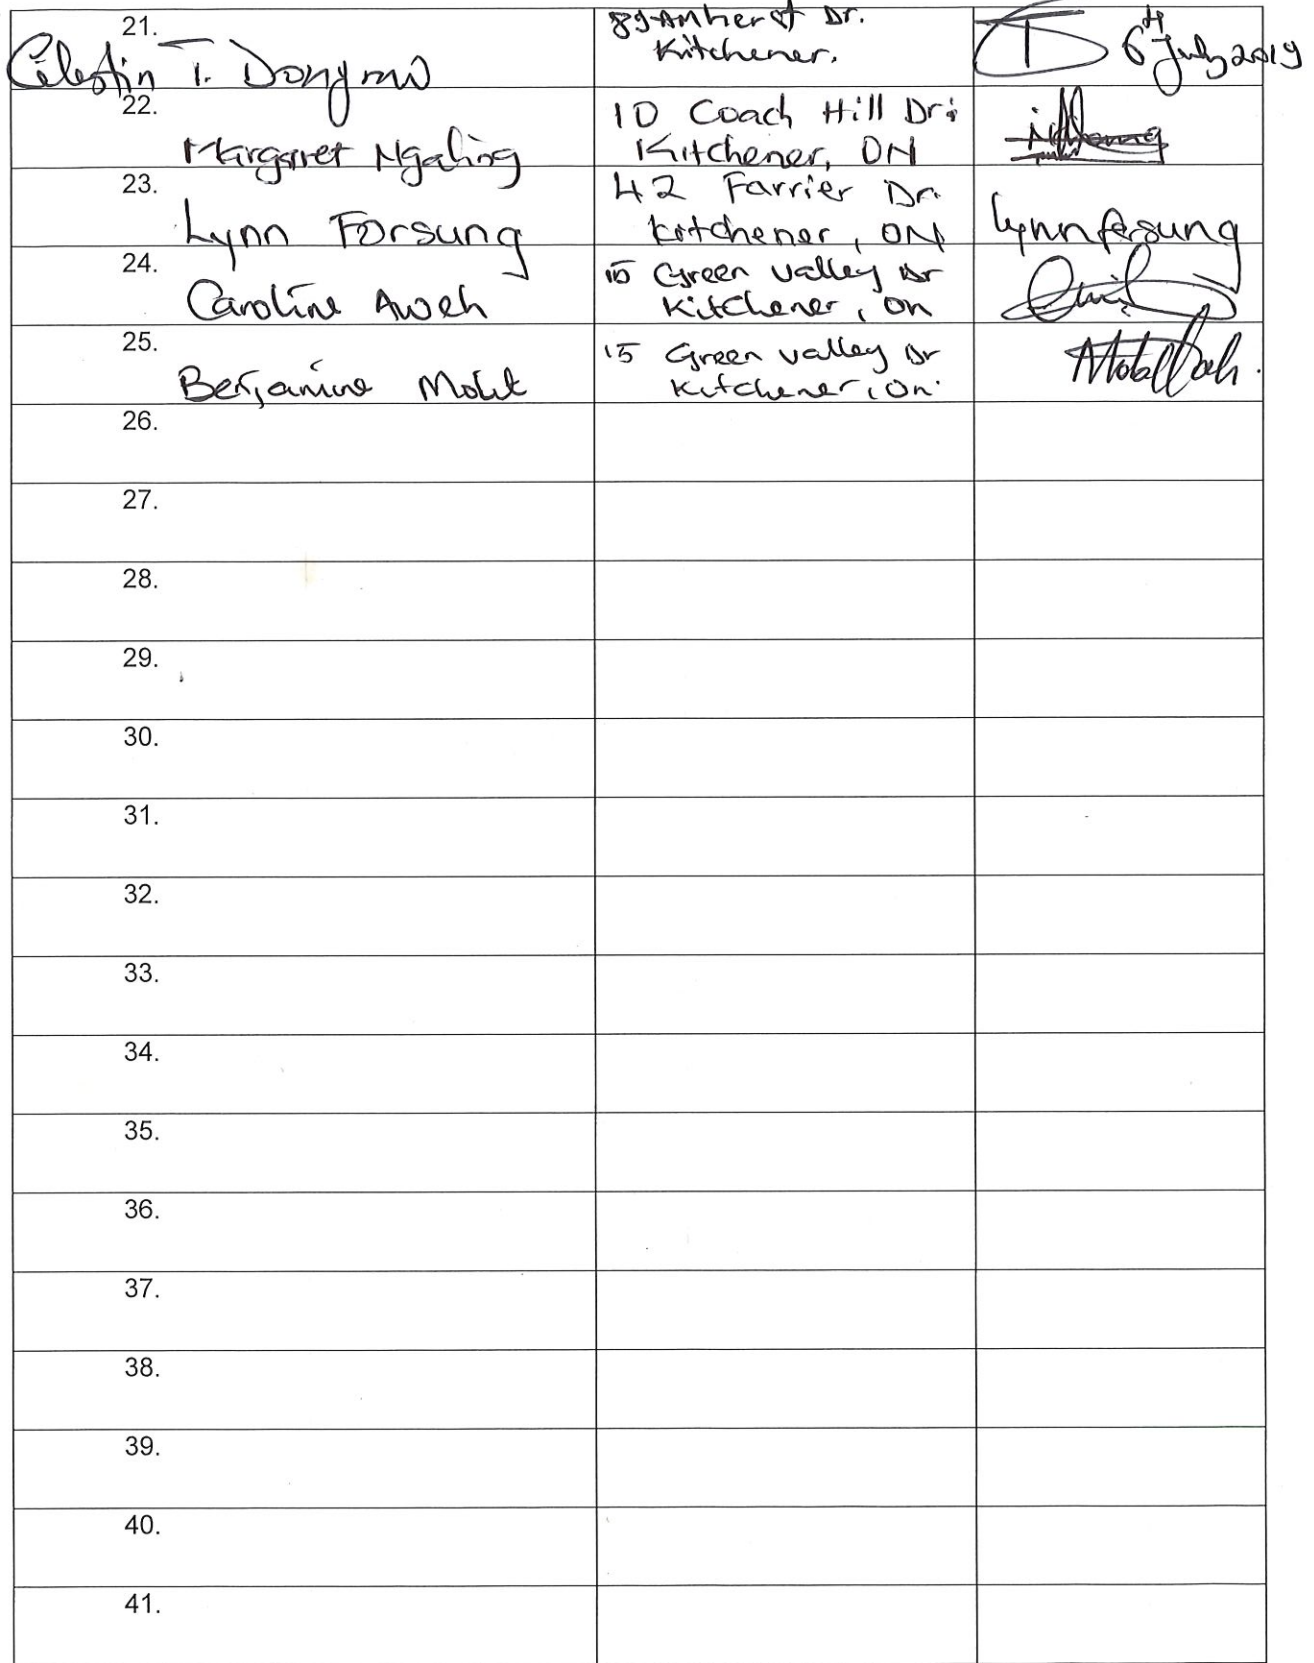 21.
Célestin T. Dongmo
89 Amherst Dr.
Kitchener.
6th July 2019
22.
Margaret Ngaling
10 Coach Hill Dr.
Kitchener, ON
23.
Lynn Forsung
42 Farrier Dr.
Kitchener, ON
Lynn forsung
24.
Caroline Aweh
15 Green valley Dr
Kitchener, on
25.
Benjamine
15 Green valley Dr
Kitchener, On.
26.
27.
28.
29.
30.
31.
32.
33.
34.
35.
36.
37.
38.
39.
40.
41.